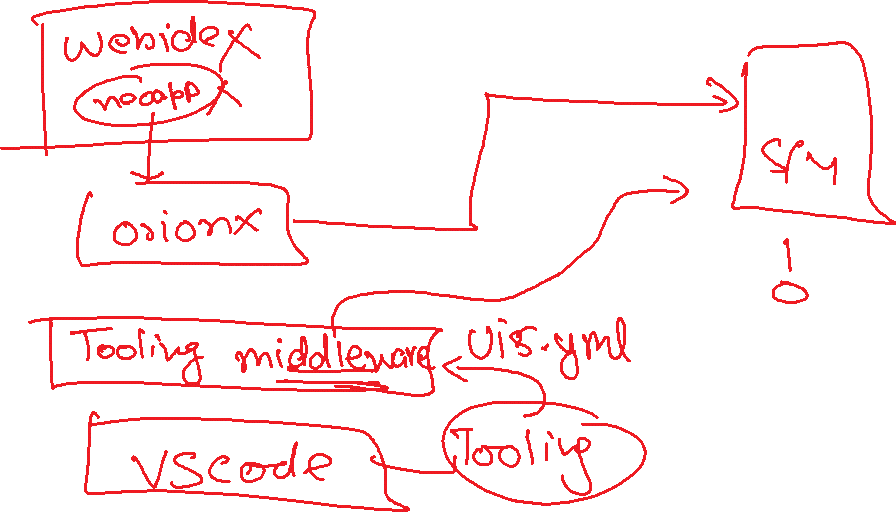 Webidex
neoapp x
orionx
Tooling middleware Ui5.yml
VScode Tooling